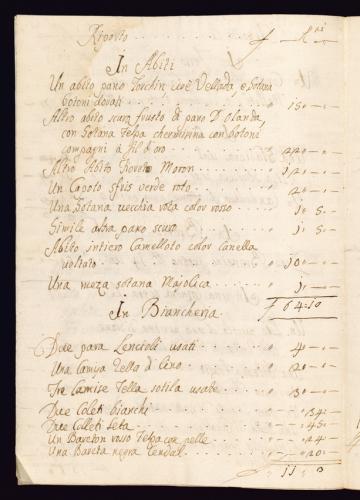 Riporto
In Abiti
Un abito pano Torchin cioè Vellada e Sotana
botoni dorati 15
Altro abito scuro frusto di pano D'olanda
con Sotana Felpa con botoni
compagni à fil d'oro
Altro Abito Moron
Un Capoto verde roto 2
Una Sotana vecchia rota color rosso 1 5
Simile altra pano scuro 1 5
Abito intiero Camelloto color Canella
voltato 10
Una meza sotana Majolica 1
64:10
In Biancheria
Due para Lencioli usati 4
Una Camisa Tella di Lino 2
Tre Camise Tella sotila usate 3
Due Coleti bianchi
Due Colleti Seta
Un Bareton rosso Felpa con pelle
Una Bareta negra Cendal
11